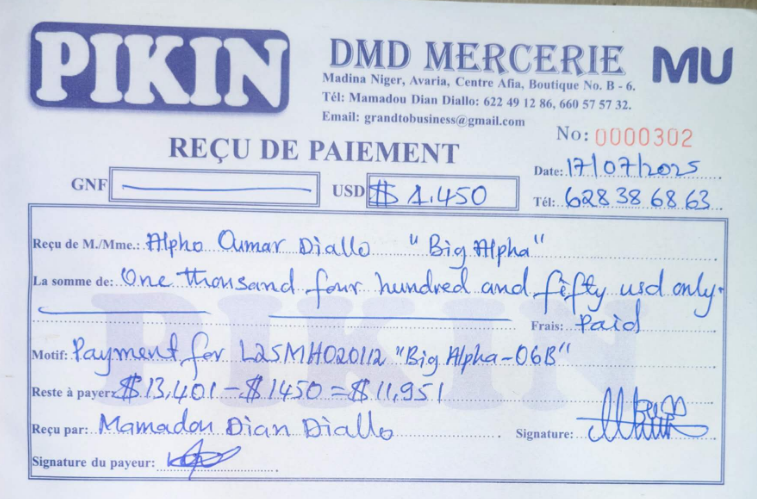 PIKIN
DMD MERCERIE MU
Madina Niger, Avaria, Centre Afia, Boutique No. B - 6.
Tél: Mamadou Dian Diallo: 622 49 12 86, 660 57 57 32.
Email: grandtobusiness@gmail.com
No: 0000302
REÇU DE PAIEMENT
Date: 17/07/2025
GNF USD $ 1.450
Tél: 628 38 68 63
Reçu de M./Mme.: Alpho Oumar Diallo "Big Alpha"
La somme de: One thousand four hundred and fifty usd only.
Frais: Paid
Motif: Payment for L25MH020112 "Big Alpha-06B"
Reste à payer: $13,401 - $1450 = $11,951
Reçu par: Mamadou Dian Diallo Signature:
Signature du payeur:
PIKIN